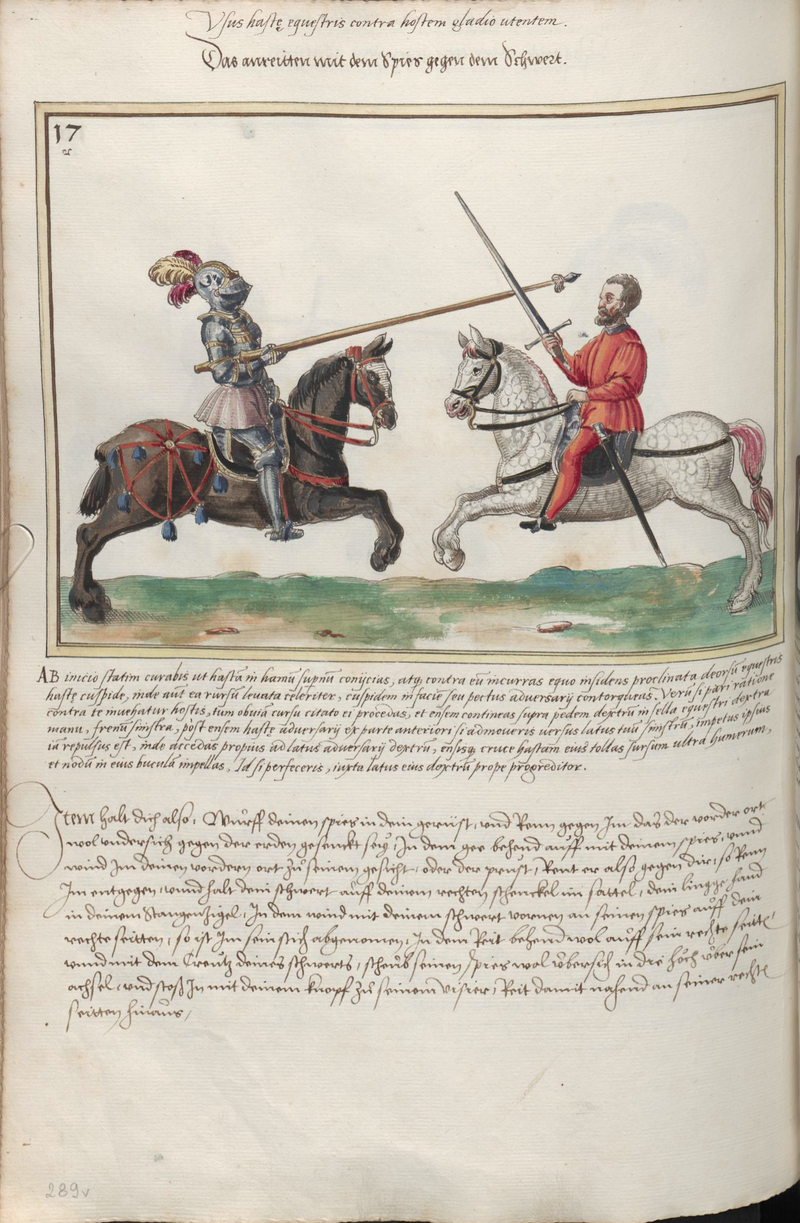 Vsus hastę equestris contra hostem gladio utentem.
Das anreitten mit dem Spies gegen dem Schwert.
17
AB inicio statim curabis ut hastā in hamū supnū conijcias, atq; contra eū incurras equo insidens proclinata deorsū equestris
hastę cuspide, inde aūt ea rursū leuata celeriter, cuspidem in facie seu pectus aduersarij contorqueas. Verū si pari ratione
contra te inuehatur hostis, tum obuiā cursu citato ei procedas, et ensem contineas supra pedem dextrū in sella equestri dextra
manu, frenū sinistra, post ensem hastę aduersarij ex parte anteriori si admoueris uersus latus tuū sinistrū, impetus ipsius
iā repulsus est, inde decedas propius ad latus aduersarij dextrū, ensisq; cruce hastam eius tollas sursum ultra humerum,
et nodū in eius bucculā impellas, Id si perfeceris, iuxta latus eius dextrū prope progreditor.
Item halt dich also, Wurff deinen spies in dein gerüst, vnd Renn gegen Im das der vorder ort
wol vndersich gegen der erden gesenckt sey, In dem gee behend auff mit deinem spies, vnnd
wind Im deinen vordern ort zů seinem gesicht, oder der prust, Rent er also gegen dir, so Renn
Im entgegen, vnnd halt dein schwert auff deinem rechten schenckel im sattel, dein lingge hand
in deinem Stangenzigel, In dem wind mit deinem schwert vornen an seinen spies auff dein
rechte seitten, so ist Im sein stich abgenomen, In dem Reit behend wol auff sein rechte seitt
vnnd mit dem Creutz deines schwerts, scheub seinen spies wol vbersich in die höch vber sein
achsel, vnd stos In mit deinem knopf zů seinem visier, Reit damit nahend an seiner recht
seitten hinaus,
289v